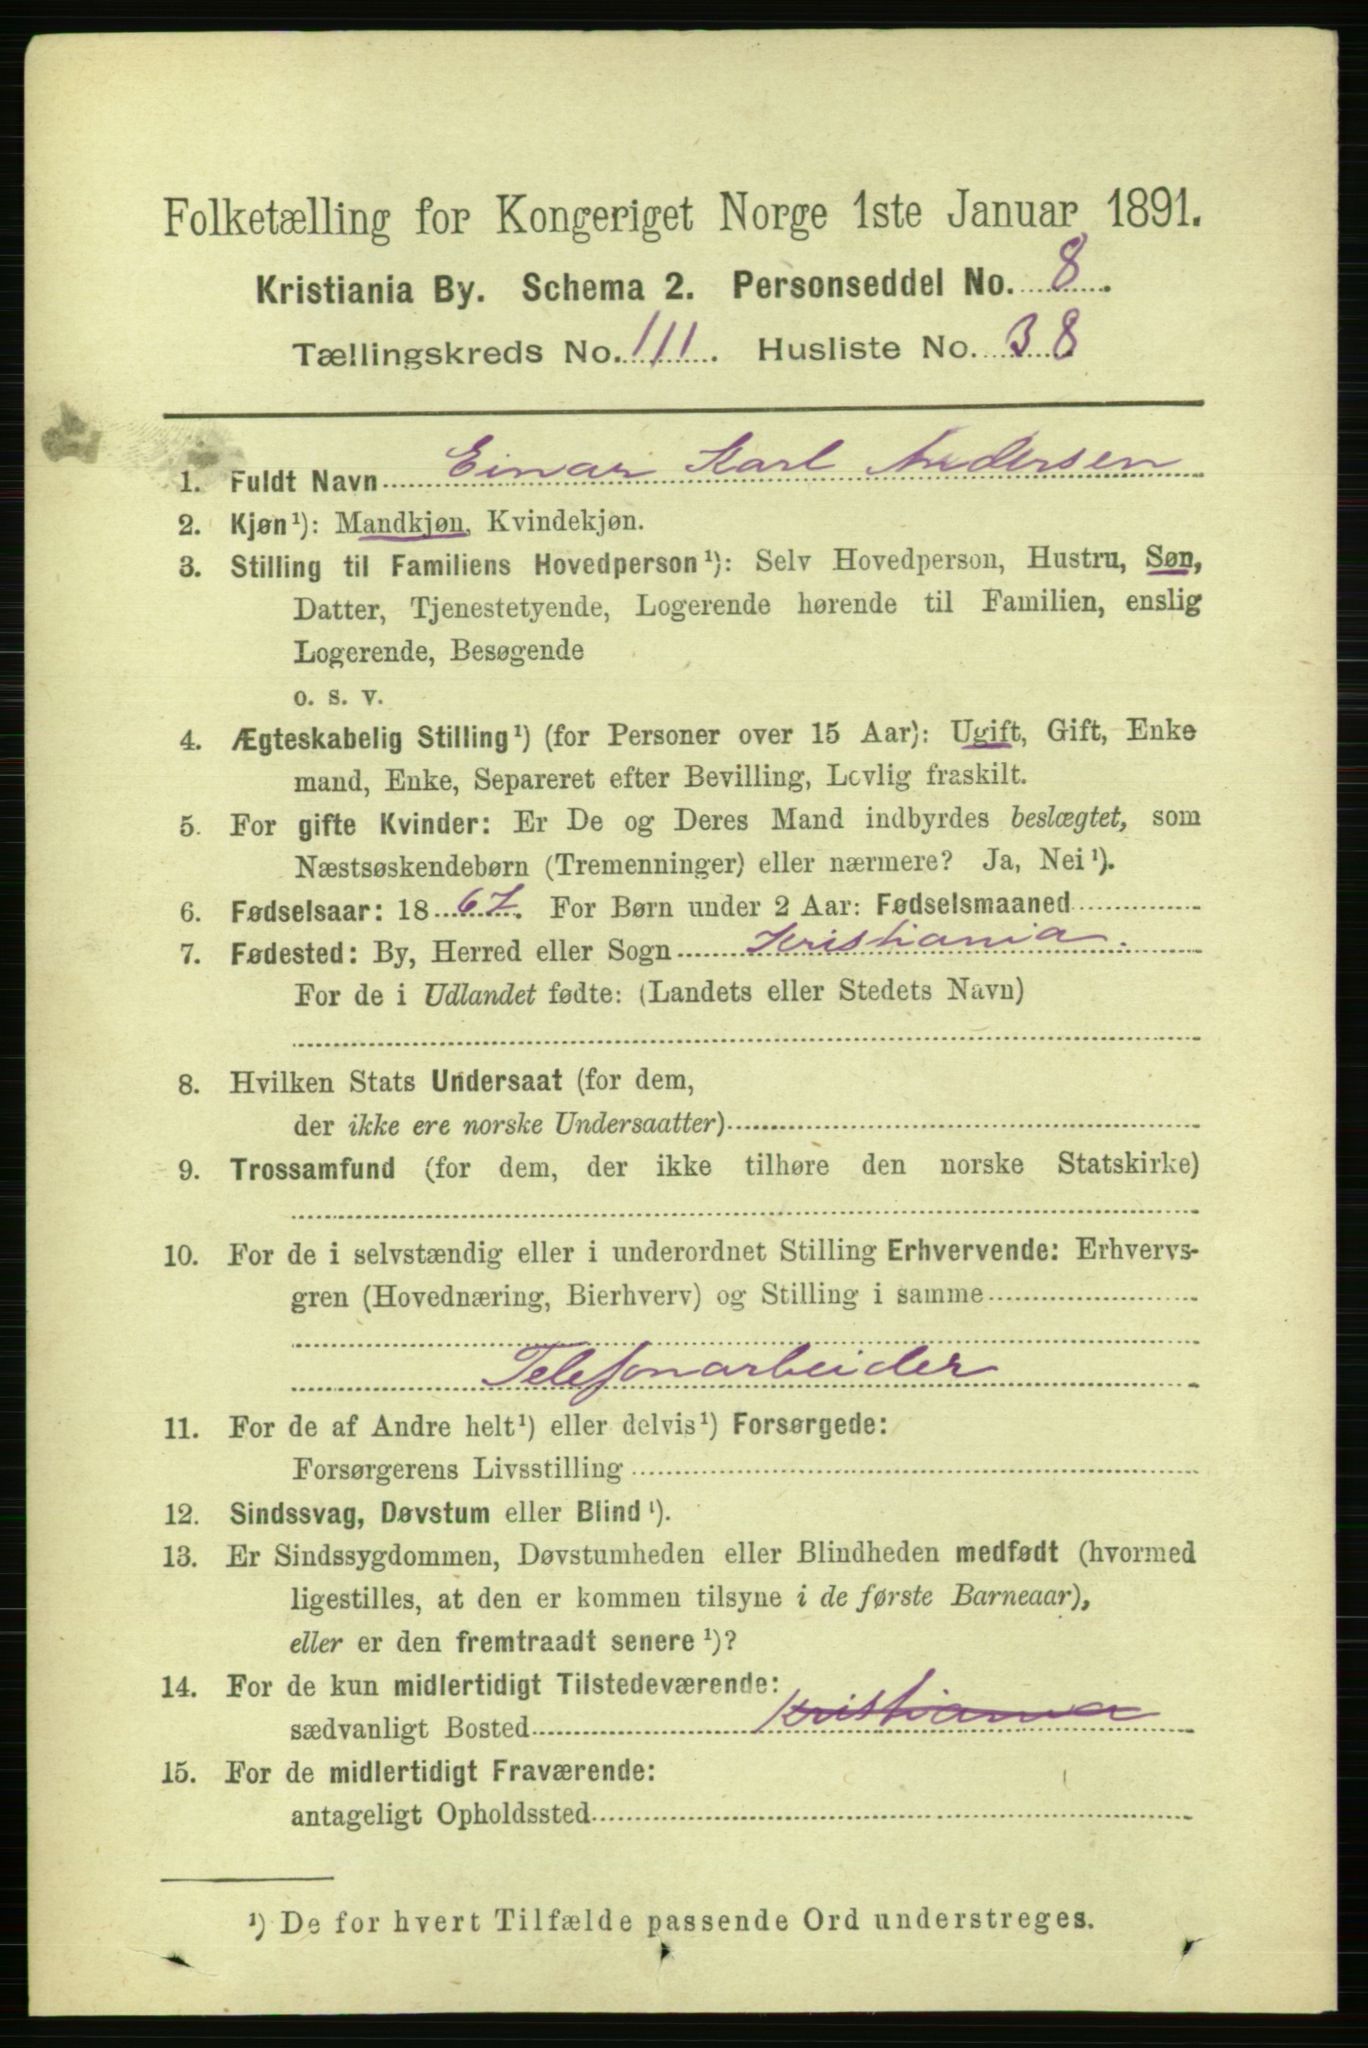 Folketælling for Kongeriget Norge 1ste Januar 1891.
Kristiania By. Schema 2. Personseddel No. 8.
Tællingskreds No. 111. Husliste No. 38
1. Fuldt Navn Einar Karl Andersen
2. Kjøn¹): Mandkjøn, Kvindekjøn.
3. Stilling til Familiens Hovedperson¹): Selv Hovedperson, Hustru, Søn,
Datter, Tjenestetyende, Logerende hørende til Familien, enslig
Logerende, Besøgende
o. s. v.
4. Ægteskabelig Stilling¹) (for Personer over 15 Aar): Ugift, Gift, Enke
mand, Enke, Separeret efter Bevilling, Lovlig fraskilt.
5. For gifte Kvinder: Er De og Deres Mand indbyrdes beslægtet, som
Næstsøskendebørn (Tremenninger) eller nærmere? Ja, Nei¹).
6. Fødselsaar: 1867. For Børn under 2 Aar: Fødselsmaaned
7. Fødested: By, Herred eller Sogn Kristiania.
For de i Udlandet fødte: (Landets eller Stedets Navn)
8. Hvilken Stats Undersaat (for dem,
der ikke ere norske Undersaatter)
9. Trossamfund (for dem, der ikke tilhøre den norske Statskirke)
10. For de i selvstændig eller i underordnet Stilling Erhvervende: Erhvervs-
gren (Hovednæring, Bierhverv) og Stilling i samme
Telefonarbeider
11. For de af Andre helt¹) eller delvis¹) Forsørgede:
Forsørgerens Livsstilling
12. Sindssvag, Døvstum eller Blind¹).
13. Er Sindssygdommen, Døvstumheden eller Blindheden medfødt (hvormed
ligestilles, at den er kommen tilsyne i de første Barneaar),
eller er den fremtraadt senere¹)?
14. For de kun midlertidigt Tilstedeværende:
sædvanligt Bosted Kristiania
15. For de midlertidigt Fraværende:
antageligt Opholdssted
¹) De for hvert Tilfælde passende Ord understreges.